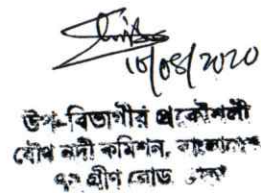 ১৮/০৪/২০২০
উপ-বিভাগীয় প্রকৌশলী
যৌথ নদী কমিশন, বাংলাদেশ
৭২ গ্রীণ রোড, ঢাকা